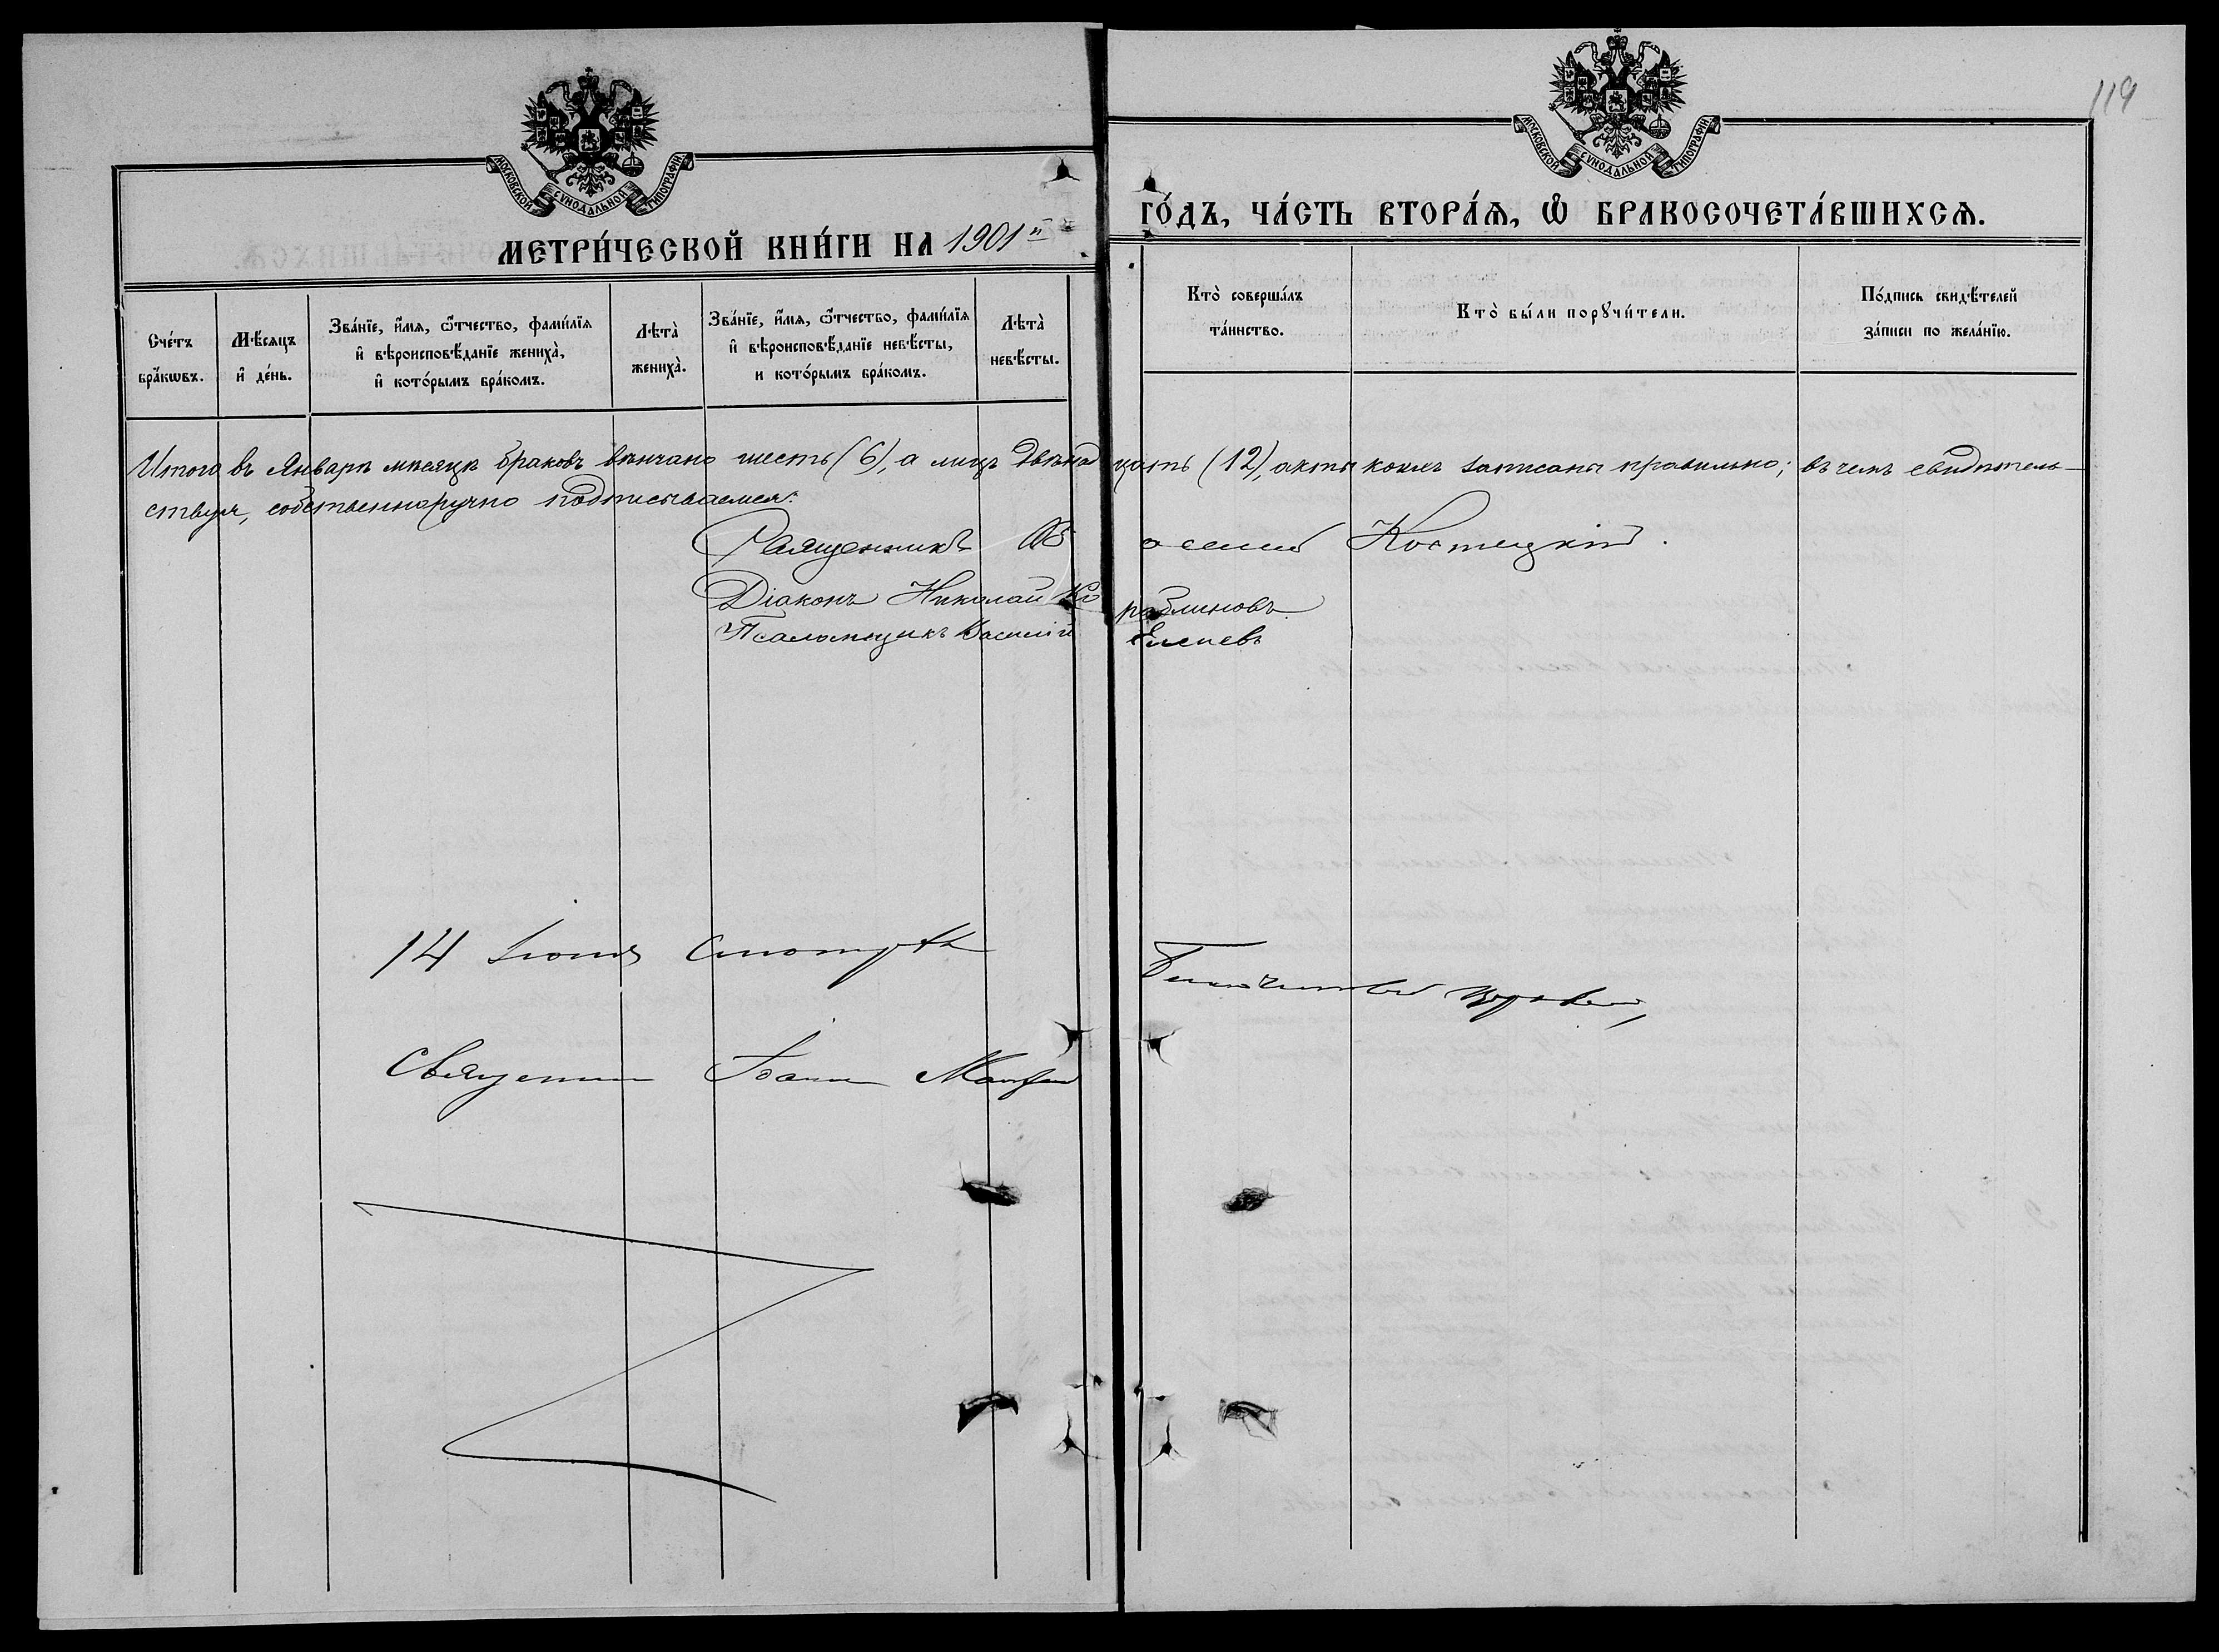 119
МОСКОВСКОЙ СѴНОДАЛЬНОЙ ТИПОГРАФІИ
МОСКОВСКОЙ СѴНОДАЛЬНОЙ ТИПОГРАФІИ
МЕТРИ́ЧЕСКОЙ КНИ́ГИ НА 1901й ГО́ДЪ, ЧА́СТЬ ВТОРА́Ѧ, Ѽ БРАКОСОЧЕТА́ВШИХСѦ.
Сче́тъ бра́кѡвъ.
Мѣ́сяцъ и҆ де́нь.
Зва́нїе, и҆́мѧ, ѻ҆́тчество, фами́лїѧ и҆ вѣроисповѣ́данїе жениха̀, и҆ кото́рымъ бра́комъ.
Лѣта̀ жениха̀.
Зва́нїе, и҆́мѧ, ѻ҆́тчество, фами́лїѧ и҆ вѣроисповѣ́данїе невѣ́сты, и кото́рымъ бра́комъ.
Лѣта̀ невѣ́сты.
Кто̀ соверша́лъ та́инство.
Кто̀ бы́ли порꙋчи́тели.
По́дпись свидѣ́телей за́писи по жела́нїю.
Итого въ Январѣ мѣсяцѣ браковъ вѣнчано шесть (6), а лицъ двѣнадцать (12), акты коихъ записаны правильно; въ чемъ свидѣтель-
ствуя, собственноручно подписываемся:
Священникъ Костецкій.
Діаконъ Николай
Псаломщикъ Василій Елсиевъ
14 Іюня
Священник Іоанн